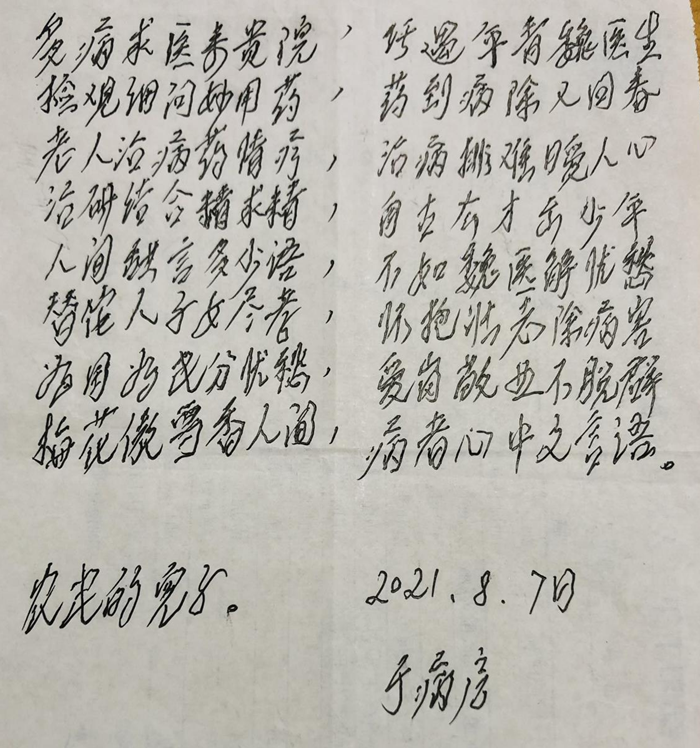 多病求医来贵院， 巧遇年青魏医生
捡观细问妙用药， 药到病除又回春
老人治病药膳疗， 治病排难暖人心
治研结合精求精， 自古右才出少年
人间缺言多少语， 不如魏医解忧愁
替佗人子女尽孝， 怀抱壮志除病害
为国为民分忧愁， 爱岗敬业不脱群
梅花傲雪香人间， 病者心中文言语。
农民的儿子。 2021.8.7日
于病房